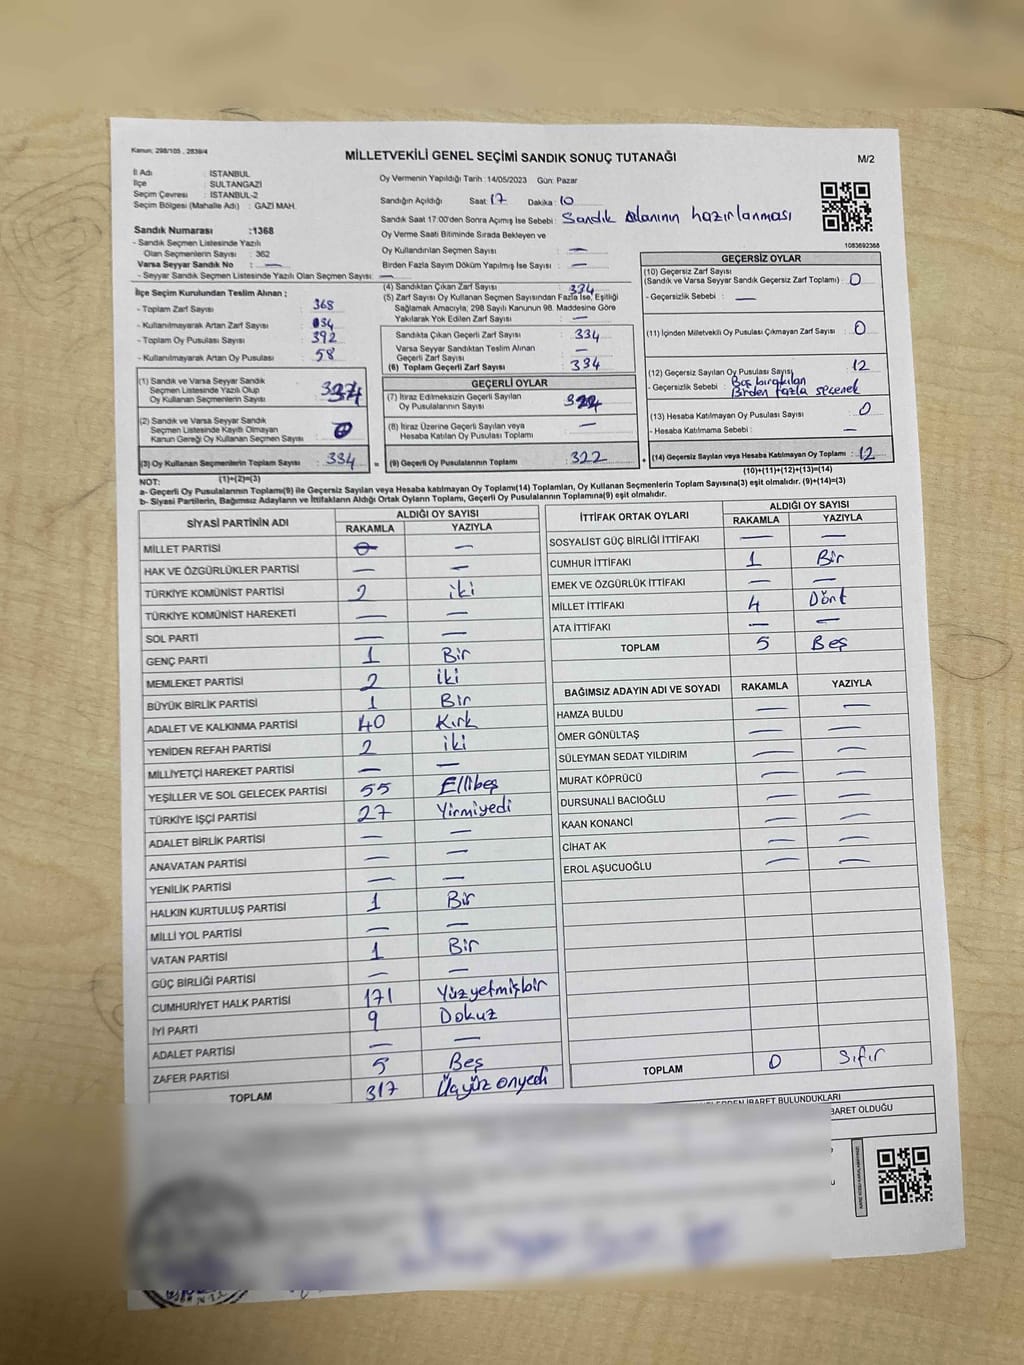 Kanun; 298/105 , 2839/4
MİLLETVEKİLİ GENEL SEÇİMİ SANDIK SONUÇ TUTANAĞI
M/2
İl Adı : İSTANBUL
İlçe : SULTANGAZİ
Seçim Çevresi : İSTANBUL-2
Seçim Bölgesi (Mahalle Adı) : GAZİ MAH.
Oy Vermenin Yapıldığı Tarih : 14/05/2023 Gün: Pazar
Sandığın Açıldığı Saat: 17 Dakika : 10
Sandık Saat 17:00'den Sonra Açımış İse Sebebi : Sandık alanının hazırlanması
Oy Verme Saati Bitiminde Sırada Bekleyen ve
Oy Kullandırılan Seçmen Sayısı : —
Birden Fazla Sayım Döküm Yapılmış İse Sayısı : —
1083692368
Sandık Numarası :1368
- Sandık Seçmen Listesinde Yazılı
Olan Seçmenlerin Sayısı : 362
Varsa Seyyar Sandık No : —
- Seyyar Sandık Seçmen Listesinde Yazılı Olan Seçmen Sayısı: —
İlçe Seçim Kurulundan Teslim Alınan ;
- Toplam Zarf Sayısı : 368
- Kullanılmayarak Artan Zarf Sayısı : 034
- Toplam Oy Pusulası Sayısı : 392
- Kullanılmayarak Artan Oy Pusulası : 58
(1) Sandık ve Varsa Seyyar Sandık
Seçmen Listesinde Yazılı Olup
Oy Kullanan Seçmenlerin Sayısı : 334
(2) Sandık ve Varsa Seyyar Sandık
Seçmen Listesinde Kayıtlı Olmayan
Kanun Gereği Oy Kullanan Seçmen Sayısı : 0
(3) Oy Kullanan Seçmenlerin Toplam Sayısı : 334
(1)+(2)=(3)
(4) Sandıktan Çıkan Zarf Sayısı : 334
(5) Zarf Sayısı Oy Kullanan Seçmen Sayısından Fazla İse, Eşitliği
Sağlamak Amacıyla; 298 Sayılı Kanunun 98. Maddesine Göre
Yakılarak Yok Edilen Zarf Sayısı : —
Sandıkta Çıkan Geçerli Zarf Sayısı : 334
Varsa Seyyar Sandıktan Teslim Alınan
Geçerli Zarf Sayısı : —
(6) Toplam Geçerli Zarf Sayısı : 334
GEÇERLİ OYLAR
(7) İtiraz Edilmeksizin Geçerli Sayılan
Oy Pusulalarının Sayısı : 322
(8) İtiraz Üzerine Geçerli Sayılan veya
Hesaba Katılan Oy Pusulası Toplamı : —
= (9) Geçerli Oy Pusulalarının Toplamı : 322
GEÇERSİZ OYLAR
(10) Geçersiz Zarf Sayısı
(Sandık ve Varsa Seyyar Sandık Geçersiz Zarf Toplamı) : 0
- Geçersizlik Sebebi : —
(11) İçinden Milletvekili Oy Pusulası Çıkmayan Zarf Sayısı : 0
(12) Geçersiz Sayılan Oy Pusulası Sayısı : 12
- Geçersizlik Sebebi : Boş bırakılan
Birden fazla seçenek
(13) Hesaba Katılmayan Oy Pusulası Sayısı : 0
- Hesaba Katılmama Sebebi : —
+ (14) Geçersiz Sayılan veya Hesaba Katılmayan Oy Toplamı : 12
(10)+(11)+(12)+(13)=(14)
NOT:
a- Geçerli Oy Pusulalarının Toplamı(9) ile Geçersiz Sayılan veya Hesaba katılmayan Oy Toplamı(14) Toplamları, Oy Kullanan Seçmenlerin Toplam Sayısına(3) eşit olmalıdır. (9)+(14)=(3)
b- Siyasi Partilerin, Bağımsız Adayların ve İttifakların Aldığı Ortak Oyların Toplamı, Geçerli Oy Pusulalarının Toplamına(9) eşit olmalıdır.
SİYASİ PARTİNİN ADI ALDIĞI OY SAYISI
RAKAMLA YAZIYLA
MİLLET PARTİSİ 0 —
HAK VE ÖZGÜRLÜKLER PARTİSİ — —
TÜRKİYE KOMÜNİST PARTİSİ 2 iki
TÜRKİYE KOMÜNİST HAREKETİ — —
SOL PARTİ — —
GENÇ PARTİ 1 Bir
MEMLEKET PARTİSİ 2 iki
BÜYÜK BİRLİK PARTİSİ 1 Bir
ADALET VE KALKINMA PARTİSİ 40 Kırk
YENİDEN REFAH PARTİSİ 2 iki
MİLLİYETÇİ HAREKET PARTİSİ — —
YEŞİLLER VE SOL GELECEK PARTİSİ 55 Ellibeş
TÜRKİYE İŞÇİ PARTİSİ 27 Yirmiyedi
ADALET BİRLİK PARTİSİ — —
ANAVATAN PARTİSİ — —
YENİLİK PARTİSİ — —
HALKIN KURTULUŞ PARTİSİ 1 Bir
MİLLİ YOL PARTİSİ — —
VATAN PARTİSİ 1 Bir
GÜÇ BİRLİĞİ PARTİSİ — —
CUMHURİYET HALK PARTİSİ 171 Yüzyetmişbir
İYİ PARTİ 9 Dokuz
ADALET PARTİSİ — —
ZAFER PARTİSİ 5 Beş
TOPLAM 317 Üçyüz onyedi
İTTİFAK ORTAK OYLARI ALDIĞI OY SAYISI
RAKAMLA YAZIYLA
SOSYALİST GÜÇ BİRLİĞİ İTTİFAKI — —
CUMHUR İTTİFAKI 1 Bir
EMEK VE ÖZGÜRLÜK İTTİFAKI — —
MİLLET İTTİFAKI 4 Dört
ATA İTTİFAKI — —
TOPLAM 5 Beş
BAĞIMSIZ ADAYIN ADI VE SOYADI RAKAMLA YAZIYLA
HAMZA BULDU — —
ÖMER GÖNÜLTAŞ — —
SÜLEYMAN SEDAT YILDIRIM — —
MURAT KÖPRÜCÜ — —
DURSUNALİ BACIOĞLU — —
KAAN KONANCİ — —
CİHAT AK — —
EROL AŞUCUOĞLU — —
TOPLAM 0 Sıfır
İBARET BULUNDUKLARI
BARET OLDUĞU